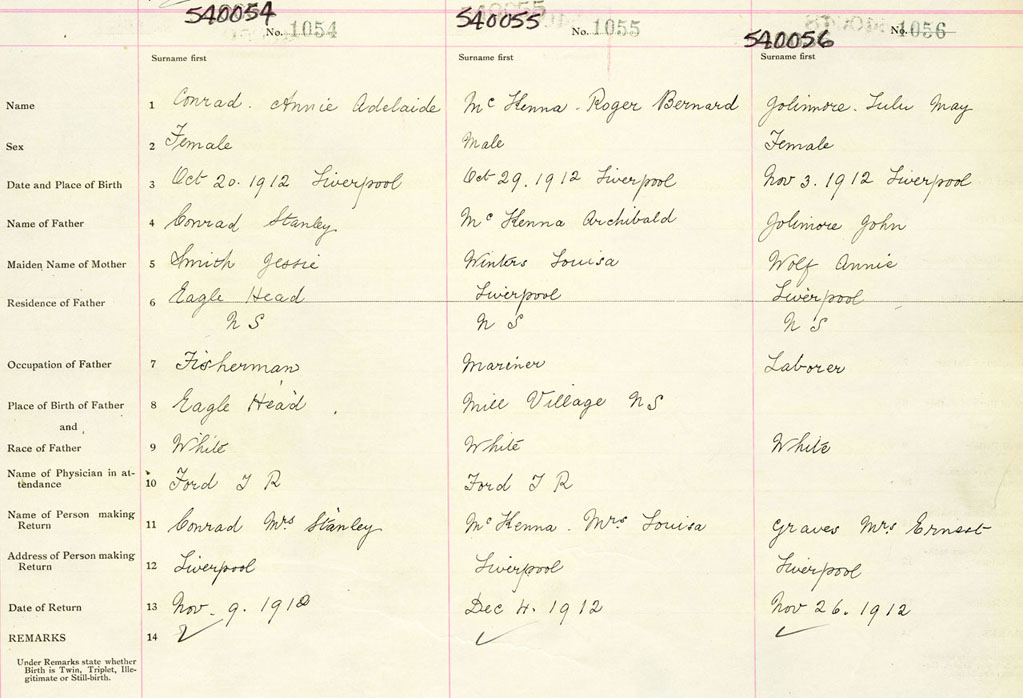 540054 540055 540056
No. 1054 No. 1055 No. 1056
Surname first Surname first Surname first
Name 1 Conrad. Annie Adelaide Mc Kenna. Roger Bernard Jolimore. Lulu May
Sex 2 Female Male Female
Date and Place of Birth 3 Oct 20. 1912 Liverpool Oct 29. 1912 Liverpool Nov 3. 1912 Liverpool
Name of Father 4 Conrad Stanley Mc Kenna Archibald Jolimore John
Maiden Name of Mother 5 Smith Jessie Winters Louisa Wolf Annie
Residence of Father 6 Eagle Head Liverpool Liverpool
N S N S N S
Occupation of Father 7 Fisherman Mariner Laborer
Place of Birth of Father 8 Eagle Head Mill Village N S
and
Race of Father 9 White White White
Name of Physician in at-
tendance 10 Ford T R Ford T R
Name of Person making
Return 11 Conrad Mrs Stanley Mc Kenna. Mrs Louisa Graves Mrs Ernest
Address of Person making
Return 12 Liverpool Liverpool Liverpool
Date of Return 13 Nov. 9. 1912 Dec 4. 1912 Nov 26. 1912
REMARKS 14
Under Remarks state whether
Birth is Twin, Triplet, Ille-
gitimate or Still-birth.